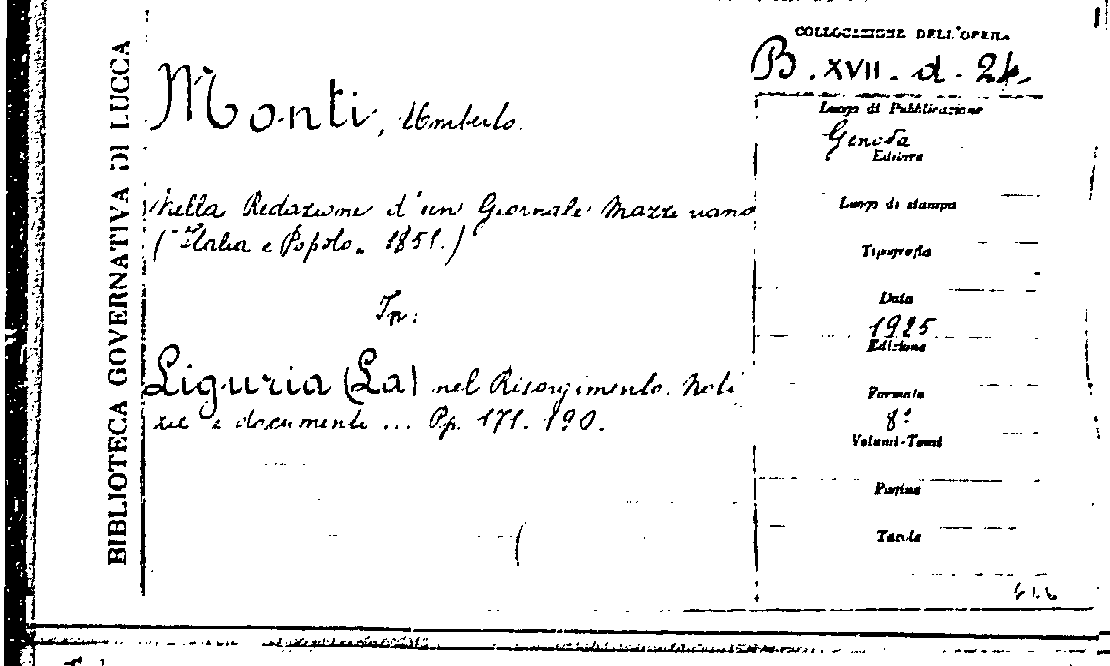 BIBLIOTECA GOVERNATIVA DI LUCCA
COLLOCAZIONE DELL'OPERA
B. XVII. d. 24.
Monti, Umberto.
Nella Redazione d'un Giornale Mazziniano
("Italia e Popolo" 1851.)
In:
Liguria (La) nel Risorgimento. Noti
zie e documenti ... Pp. 171. 190.
Luogo di Pubblicazione
Genova
Editore
Luogo di stampa
Tipografia
Data
1925
Edizione
Formato
8°
Volumi-Tomi
Pagine
Tavole